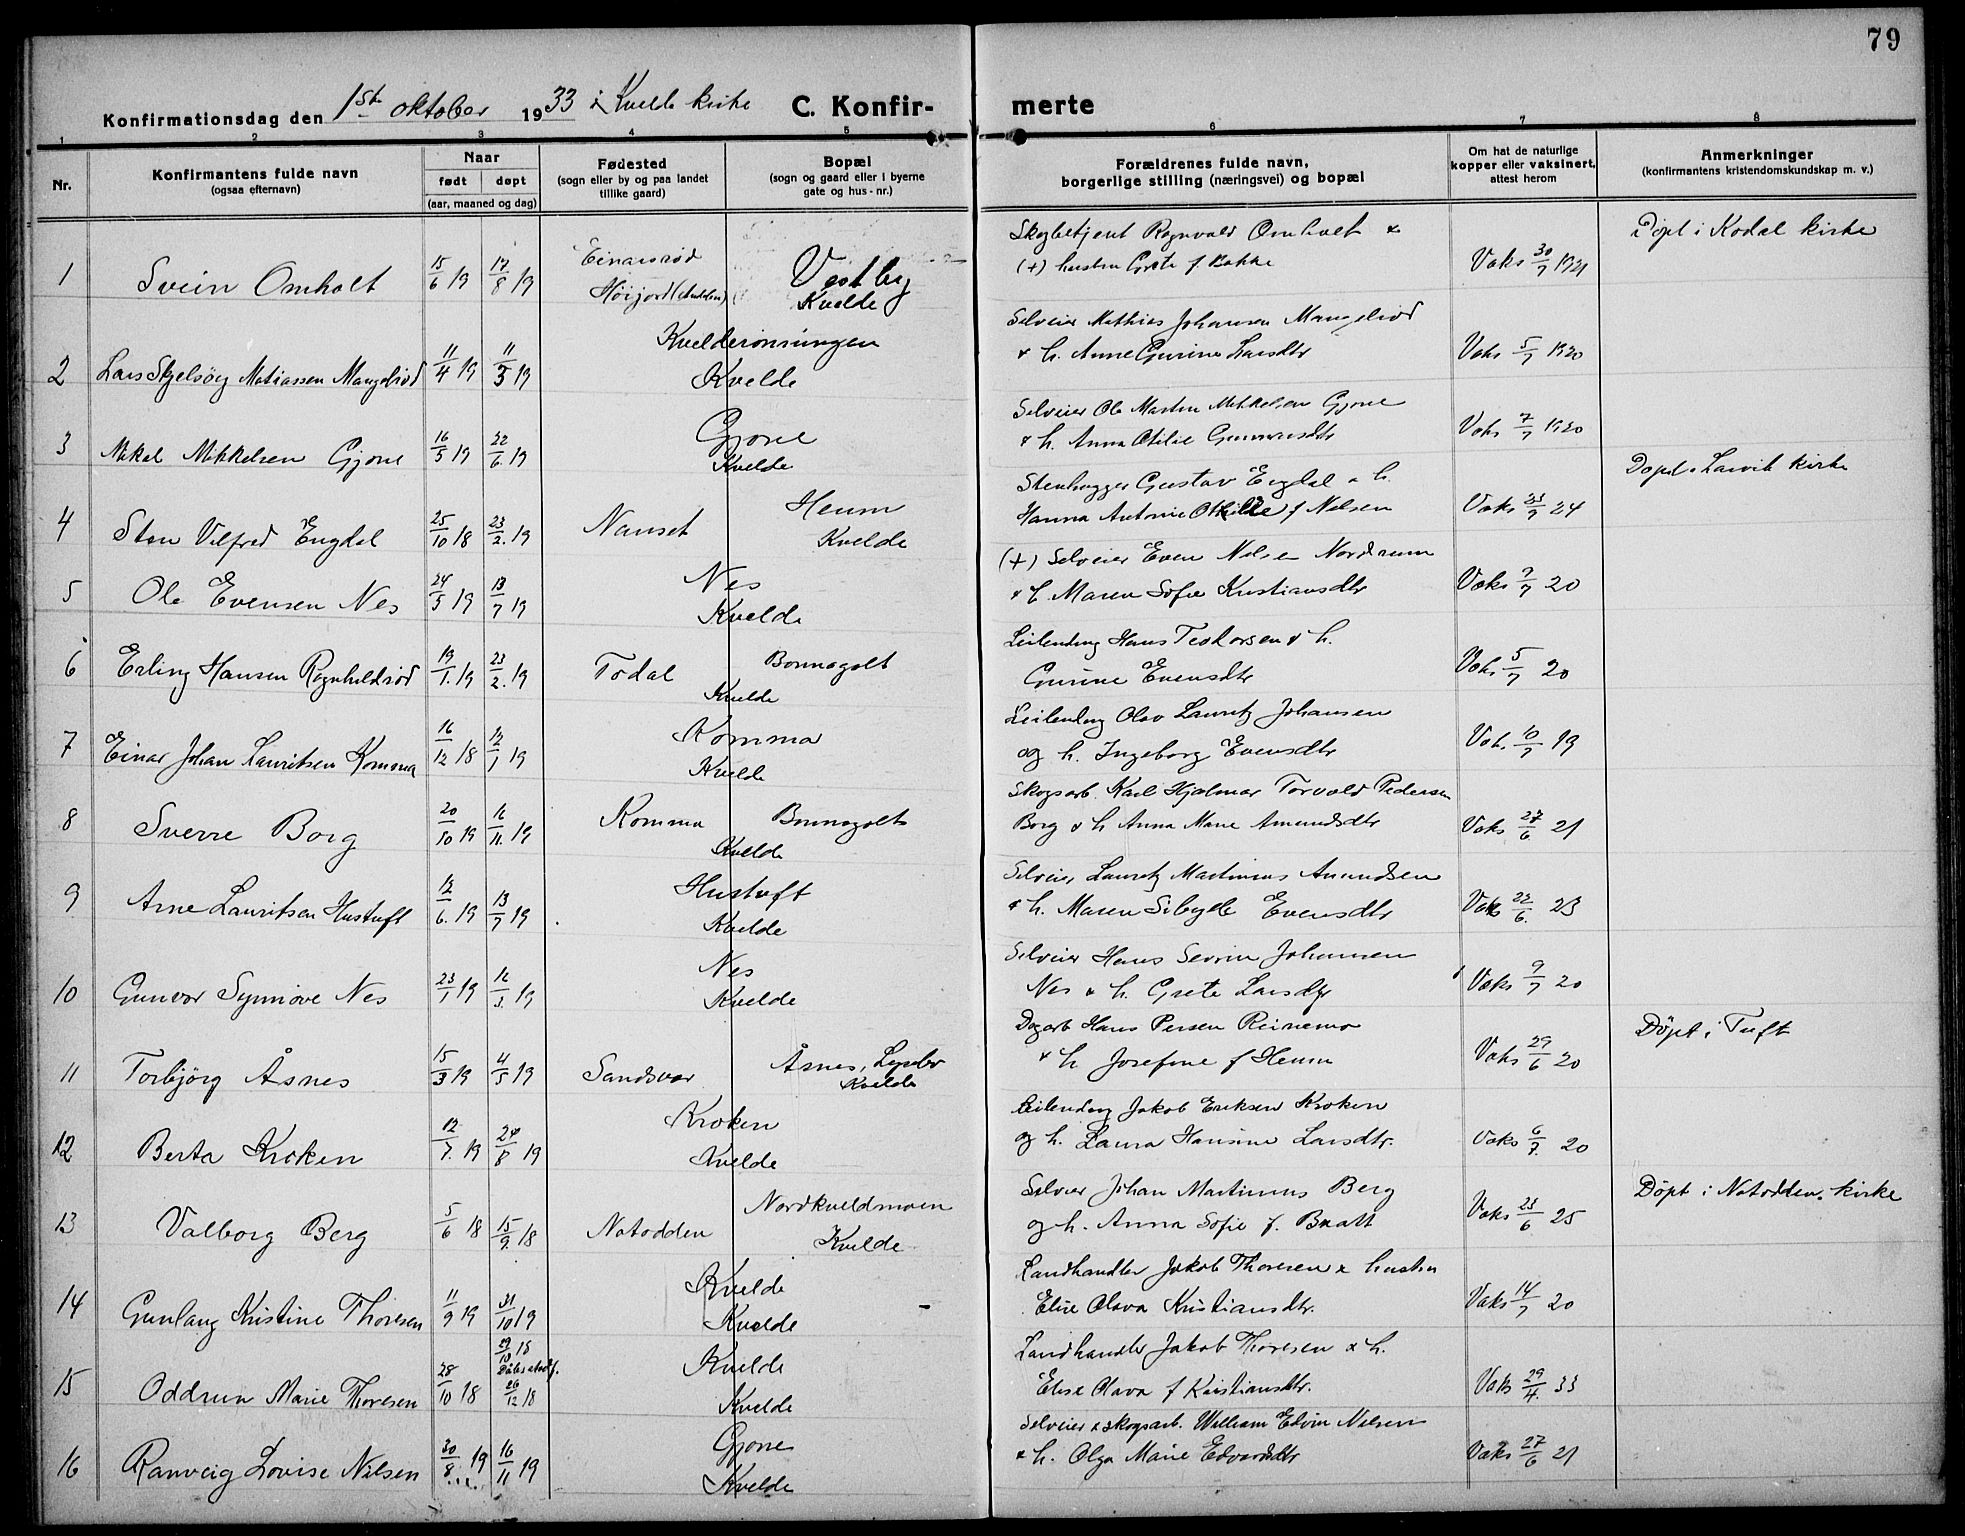 79
Konfirmationsdag den 1ste oktober 1933 i Kvelde kirke C. Konfir- merte
1 2 3 4 5 6 7 8
Nr.
Konfirmantens fulde navn
(ogsaa efternavn)
Naar
født døpt
(aar, maaned og dag)
Fødested
(sogn eller by og paa landet
tillike gaard)
Bopæl
(sogn og gaard eller i byerne
gate og hus-nr.)
Forældrenes fulde navn,
borgerlige stilling (næringsvei) og bopæl
Om hat de naturlige
kopper eller vaksinert,
attest herom
Anmerkninger
(konfirmantens kristendomskundskap m. v.)
Skogbetjent Ragnvald Omholt & Døpt i Kodal kirke
1 Svein Omholt 15/6 19 17/8 19 Einarsrød Vestby (+) hustru Grete f. Bakke Vaks 30/7 1921
Høijord (Andebu) Kvelde
Kvelderønningen Selveier Mathias Johansen Mangelrød
2 Lars Skjelsøeg Matiassen Mangelrød 11/4 19 11/5 19 Kvelde & h. Anne Gurine Larsdtr Vaks 5/7 1920
Gjone Selveier Ole Martin Mikkelsen Gjone
3 Mikal Mikkelsen Gjone 16/5 19 22/6 19 Kvelde & h. Anna Otilie Gunnarsdtr Vaks 7/7 1920
Heum Stenhugger Gustav Engdal & h. Døpt i Larvik kirke
4 Sten Vilfred Engdal 25/10 18 23/2 19 Nanset Kvelde Hanna Antonie Othilde f Nilsen Vaks 23/7 24
Nes (+) Selveier Even Nilsen Nordrum
5 Ole Evensen Nes 24/5 19 13/7 19 Kvelde & h. Maren Sofie Kristiansdtr Vaks 7/7 20
Bonnagolt Leilending Hans Teodorsen & h.
6 Erling Hansen Ragnhildsrød 19/1 19 23/2 19 Todal Kvelde Gurine Evensdtr Vaks 5/7 20
Komma Leilending Olav Lauritz Johansen
7 Einar Johan Lauritsen Komma 16/12 18 12/1 19 Kvelde og h. Ingeborg Evensdtr Vak. 10/7 19
Skogsarb. Karl Hjalmar Torvald Pedersen
8 Sverre Borg 20/10 19 16/11 19 Komma Bonnagolt Borg & h Anna Marie Amundsdtr Vaks 27/6 21
Kvelde
Hustuft Selveier Lauritz Martinius Amundsen
9 Arne Lauritsen Hustuft 12/6 19 13/7 19 Kvelde & h. Maren Sibylle Evensdtr Vaks 22/6 23
Nes Selveier Hans Severin Johannsen
10 Gunvor Synnøve Nes 23/1 19 16/3 19 Kvelde Nes & h. Grete Larsdtr Vaks 9/7 20
Dagarb Hans Persen Reinemo Døpt i Tuft
11 Torbjørg Åsnes 15/3 19 4/5 19 Sandsvær Åsnes, Lysebo & h Josefine f Heum Vaks 29/6 20
Kvelde
Kroken Leilending Jakob Eriksen Kroken
12 Berta Kroken 12/7 19 24/8 19 Kvelde og h. Laura Hansine Larsdtr. Vaks 6/7 20
Nordkveldmoen Selveier Johan Martinius Berg Døpt i Notodden kirke
13 Valborg Berg 5/6 18 15/9 18 Notodden Kvelde og h. Anna Sofie f. Bratt Vaks 23/6 25
Kvelde Landhandler Jakob Thoresen & hustru
14 Gunlaug Kristine Thoresen 11/9 19 31/10 19 Kvelde Elise Olava Kristiansdtr. Vaks 14/7 20
29/10 18 Kvelde Landhandler Jakob Thoresen & h.
Dåben stadf.
15 Oddrun Marie Thoresen 28/10 18 26/12 18 Kvelde Elise Olava f Kristiansdtr. Vaks 29/4 33
Gjone Selveier & skogsarb. William Edvin Nilsen
16 Ranveig Lovise Nilsen 30/8 19 16/11 19 Kvelde & h. Olga Marie Edvardsdtr Vaks 27/6 21